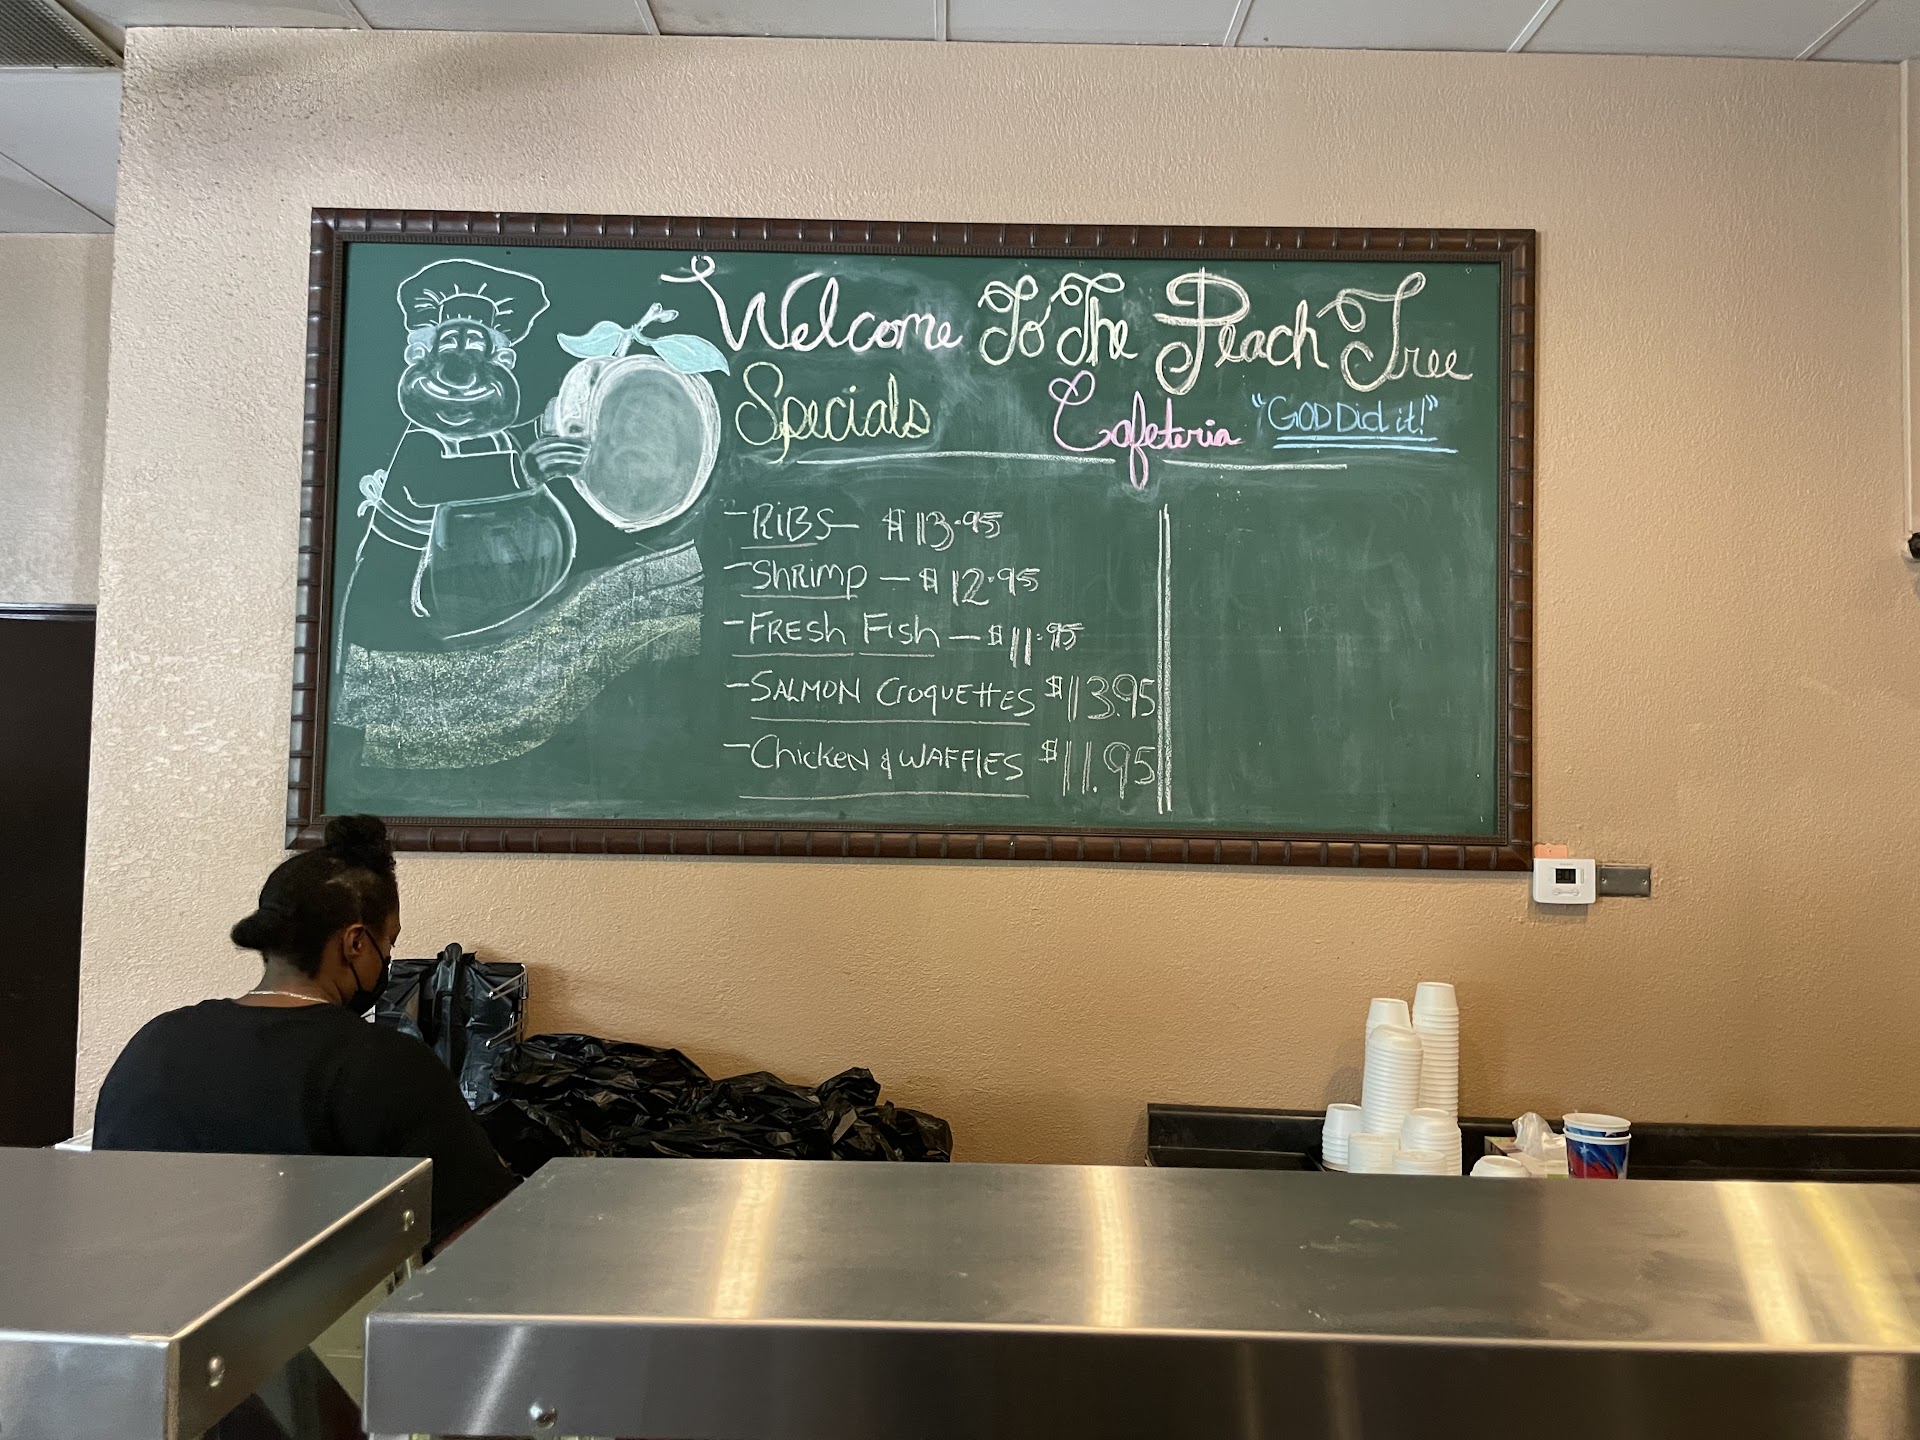 Welcome To The Peach Tree
Specials Cafeteria "GOD Did it!"
- RIBS - $13.95
- SHRIMP - $12.95
- FRESH FISH - $11.95
- SALMON CROQUETTES $13.95
- Chicken & WAFFLES $11.95